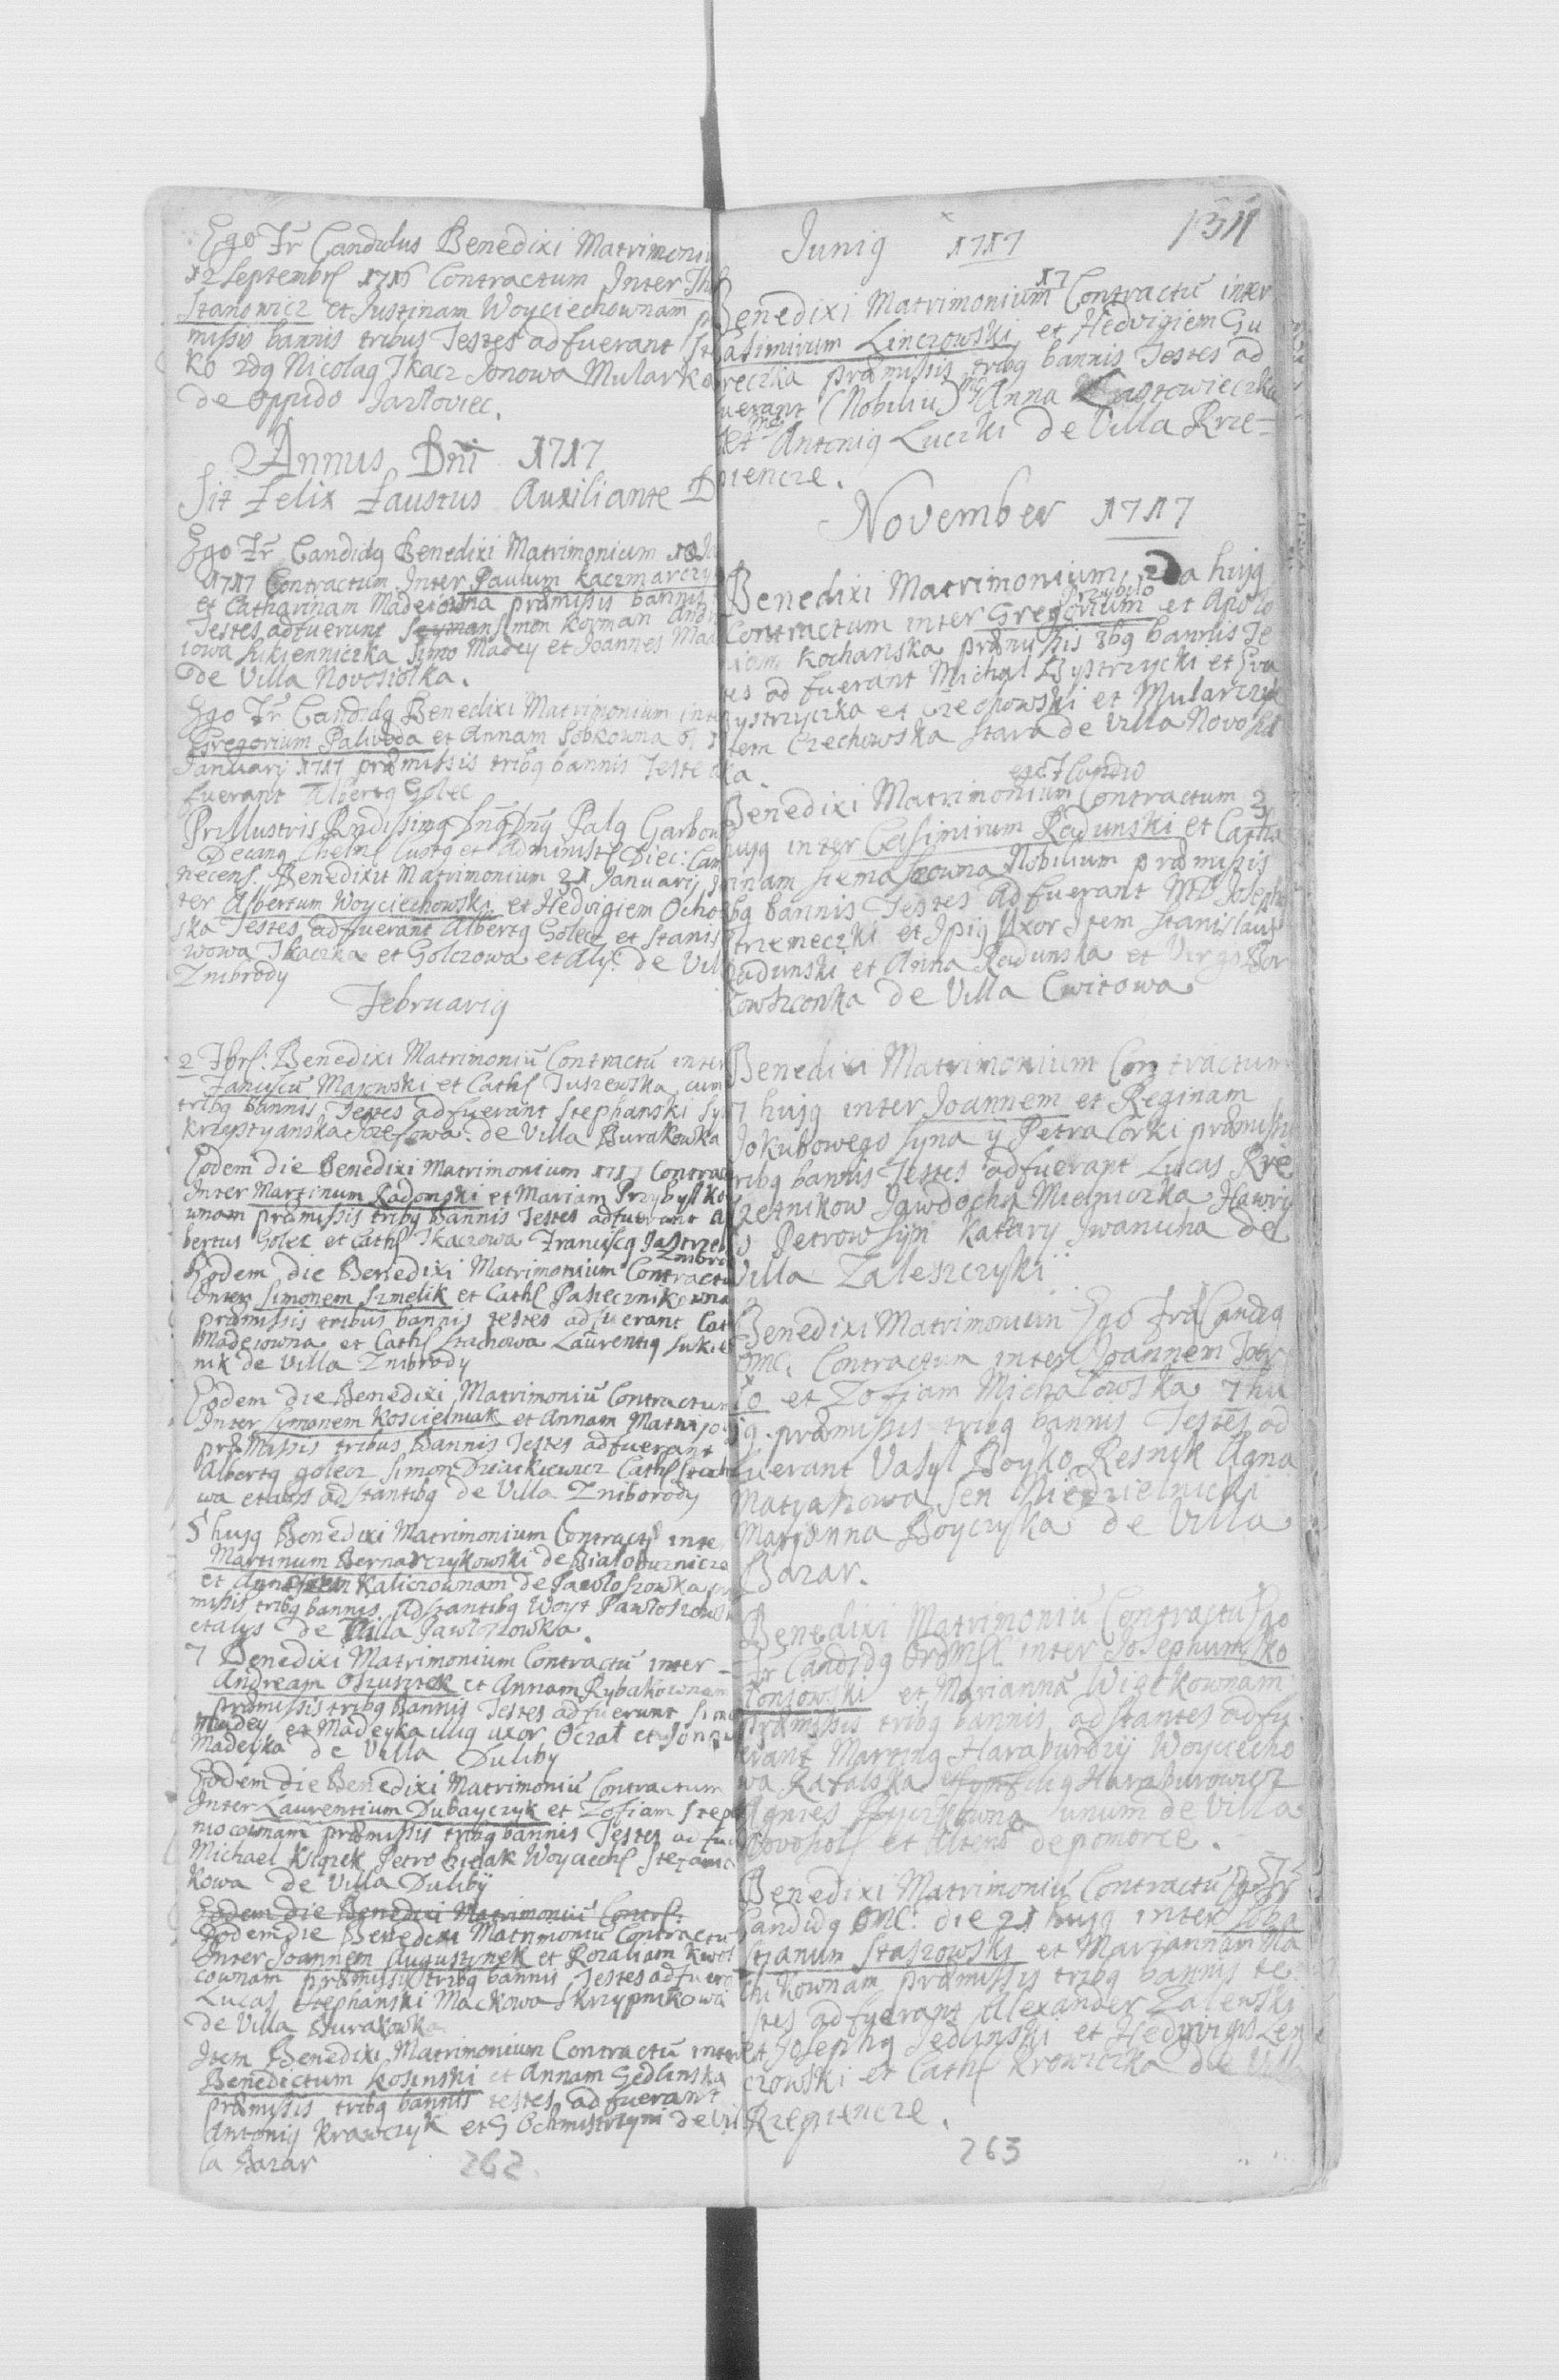 Ego Fr Candidus Benedixi Matrimoni
12 Septembr 1716 Contractum Inter Th
Stanowicz et Justinam Woyciechownam
missis bannis tribus Testes adfuerant
ko 2dg Nicolag Tkacz Jonowa Mularka
de oppido Jazloviec.
Annus Dni 1717
Sit Felix Faustus Auxiliante D
Ego Fr Candidg Benedixi Matrimonium 10
1717 Contractum Inter Paulum Kaczmarczy
et Catharinam Madeiowna præmissis bannis
Testes adfuerunt Simon Korman
iowa Sukienniczka Simo Madey et Joannes Mad
De Villa Novosiolka.
Ego Fr Candidg Benedixi Matrimonium inte
Gregorium Palivoda et Annam Sobkowna
Januarij 1717 præmissis tribg bannis Teste
fuerant Albertg Golec
Prillustris Rndissimg Dng Dng Palg Garbow
Decang Chelm Custg et Administr Diec: Cam
necens Benedixit Matrimonium 21 Januarij In
ter Albertum Woyciechowski et Hedvigiem Ocho
ska Testes adfuerant Albertg Golecz et Stanis
wowa Tkaczka et Golczowa et Alij: de Vil
Znibrody
Februarig
2 Fbr: Benedixi Matrimoniu Contractu inter
Maiowski et Cath Tuszewska cum
tribg bannis Testes adfuerant Stephanski
Krzeptyanska Jozefowa: de Villa Burakowka
Eodem die Benedixi Matrimonium 1717 Contrac
Inter Martinum Radomski et Mariam Przybylko
wnam præmissis tribg Bannis Testes adfuerant Al
bertus Golec et Cath Tkaczowa Franciscg Jastrzeb
Znibro
Eodem die Benedixi Matrimonium Contractu
Inter Simonem Szmelik et Cath Pasiecznikowna
præmissis tribus bannis testes adfuerant Cat
Madeiowna et Cath Stachowa Laurentig Sukie
nik de Villa Znibrody
Eodem die Benedixi Matrimoniu Contractum
Inter Symonem Koscielniak et Annam
præmissis tribus Bannis Testes adfuerant
Albertg golecz Simon Dziackiewicz Cath Stacho
wa et alys adstantibg de Villa Zniborody
5 hujg Benedixi Matrimonium Contract inte
Martinum Bernarczykowski de Bialoburnicze
et Kaliczownam de Pawloszowka
missis tribg bannis Adstantibg Woyt Pawloszowski
et alys de Villa Pawloszowka.
7 Benedixi Matrimonium Contractu inter
Andream Oszustek et Annam Rybakownam
præmissis tribg Bannis Testes adfuerunt Simo
Madey et Madeyka illig uxor Oczat et
Madeyka de Villa Duliby
Eodem die Benedixi Matrimoniu Contractum
Inter Laurentium Dubayczyk et Zofiam Step
niocownam præmissis tribg bannis Testes adfue
Michael Kiqzek Petro Bielak Woyciech
kowa de Villa Dulibÿ
Eodem die Benedixi Matrimoniu Contr:
Eodem die Benedixi Matrimoniu Contractu
Inter Joannem Augustynek et Rozaliam Kwol
cownam præmissis tribg bannis Testes adfuera
Lucas Stephanski Mackowa Skrzypnikowa
de Villa Burakowka
Item Benedixi Matrimonium Contractu inter
Benedictum Kosinski et Annam Gedlinska
præmissis tribg bannis testes adfuerant
Antonig Krawczyk et Ochmistrzyni de Vil
la Bazar
262
Junig 1717
1311
Benedixi Matrimonium 17 Contractu inter
asimirum Linczowski et Hedvigiem Gu
reczka præmissis tribg bannis Testes ad
uerant (Nobiliu) Anna
et Antonig Luczki de Villa Rze=
piencze.
November 1717
Benedixi Matrimonium 2da hujg
Przybilo
Contractum inter Gregorium et Apolo
iam Kochanska præmissis 3bg bannis Te
tes adfuerant Michal Bystrzycki et Eva
ystrzyczka et Czechowski et Mularczyk
tem Czechowska stara de Villa Novosiol
ka.
Benedixi Matrimonium Contractum 3
hujg inter Casimirum Radunski et Catha
rinam Nobilium præmissis
bg bannis Testes adfuerant Joseph
trzemeczki et Ipig Uxor Item Stanislaus
Radunski et Anna Radunska et Virgo Bor
kowszconka de Villa Cwitowa
Benedixi Matrimonium Contractum
7 hujg inter Joannem et Reginam
Jokubowego Syna ÿ Petra Corki præmissis
tribg bannis Testes adfuerant Lucas Rze
szetnikow Jawdocha Mielniczka Hawry
Petrow Syn Katary Iwanicha de
Villa Zaleszczyki
Benedixi Matrimonium Ego Fra Candidg
OMC. Contractum inter Joannem
lo et Zofiam Michalowska 7 hu
jg. præmissis tribg bannis Testes ad
fuerant Vasyl Boyko Resnyk Agna
Matyaszowa Sen Niedzielnicki
Maryanna Boyczyka de Villa
Bazar.
Benedixi Matrimoniu Contractu Ego
Fr Candidg inter Josephum Sko
et Marianna Wiqckownam
præmissis tribg bannis adstantes adfu
erant Marting Haraburdzy Woyciecho
wa Rafalska Haraburowicz
Agnies unum de Villa
Novosiol et Altera de pomorce.
Benedixi Matrimoniu Contractu Ego Fr
Candidg OMC: die 21 hujg inter Seba
stianum Staszowski et Mariannam Ma
chikownam præmissis tribg bannis te
stes adfuerant Alexander Zalewski
et Josephg Jedlinski et Hedvigis Len
czowski et Cath Krowiczka de Villa
Rzepiencze.
263